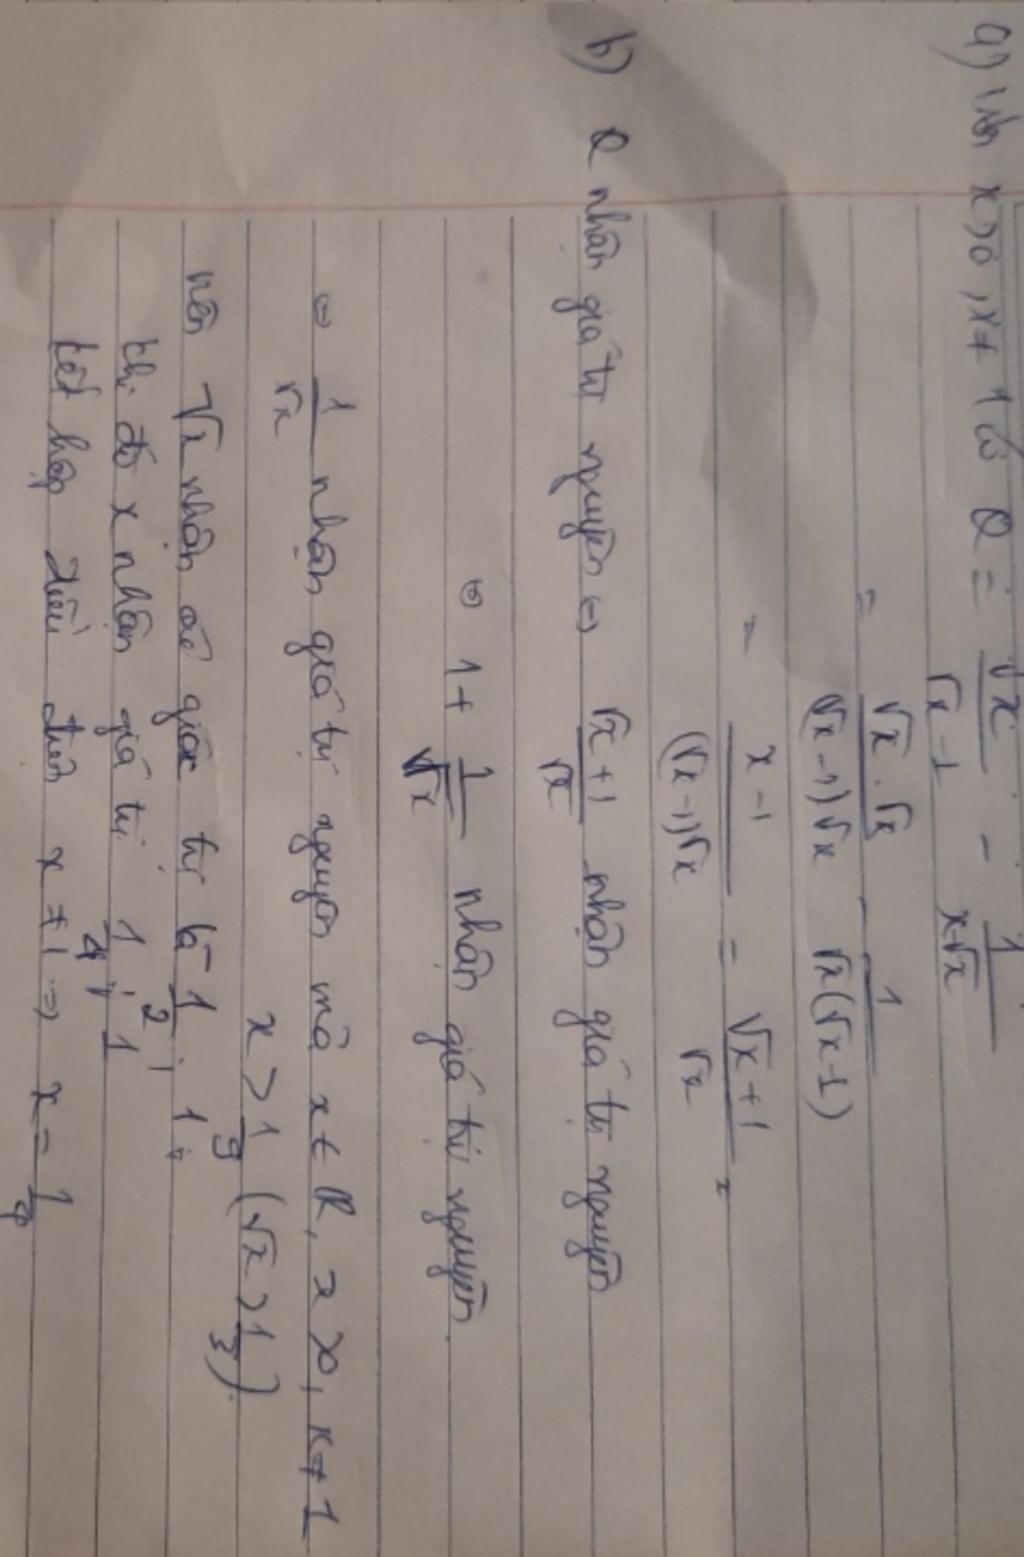 a) Với x>0, x≠1 có Q = √x/(√x-1) - 1/(x-√x)
= √x.√x/((√x-1)√x) - 1/(√x(√x-1))
= x-1/((√x-1)√x) = (√x+1)/√x
b) Q nhận giá trị nguyên ⇔ (√x+1)/√x nhận giá trị nguyên
⇔ 1+ 1/√x nhận giá trị nguyên.
⇔ 1/√x nhận giá trị nguyên mà x∈R, x>0, x≠1
x>1/9 (√x>1/3).
nên √x nhận các giá trị là 1/2; 1;
khi đó x nhận giá trị 1/4; 1
kết hợp điều kiện x≠1 ⇒ x=1/4